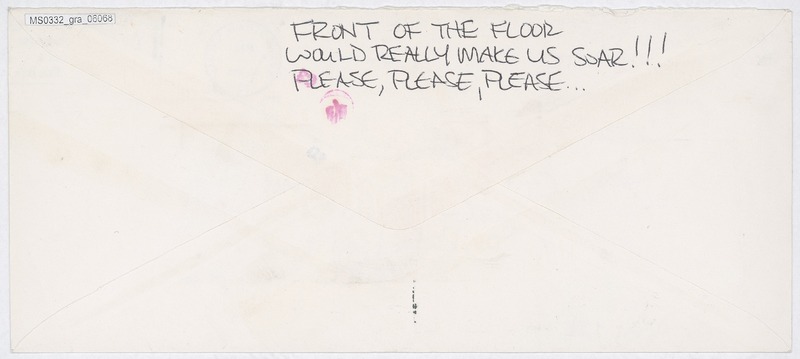 MS0332_gra_06068
FRONT OF THE FLOOR
WOULD REALLY MAKE US SOAR!!!
PLEASE, PLEASE, PLEASE...